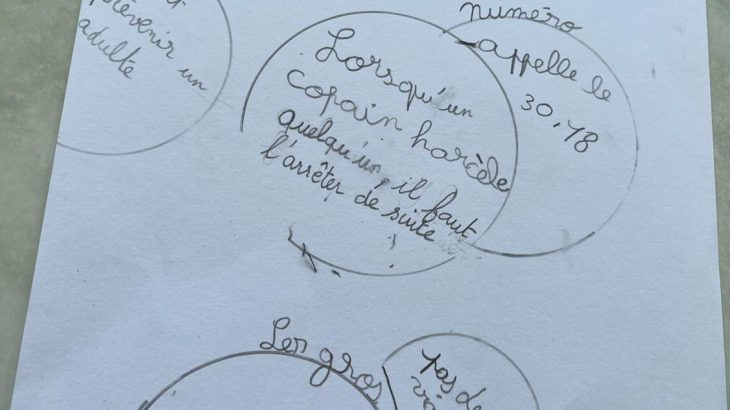 prévenir un
adulte
Lorsqu'un
copain harcèle
quelqu'un, il faut
l'arrêter de suite
numéro
appelle le
30.18
Les gros
pas de